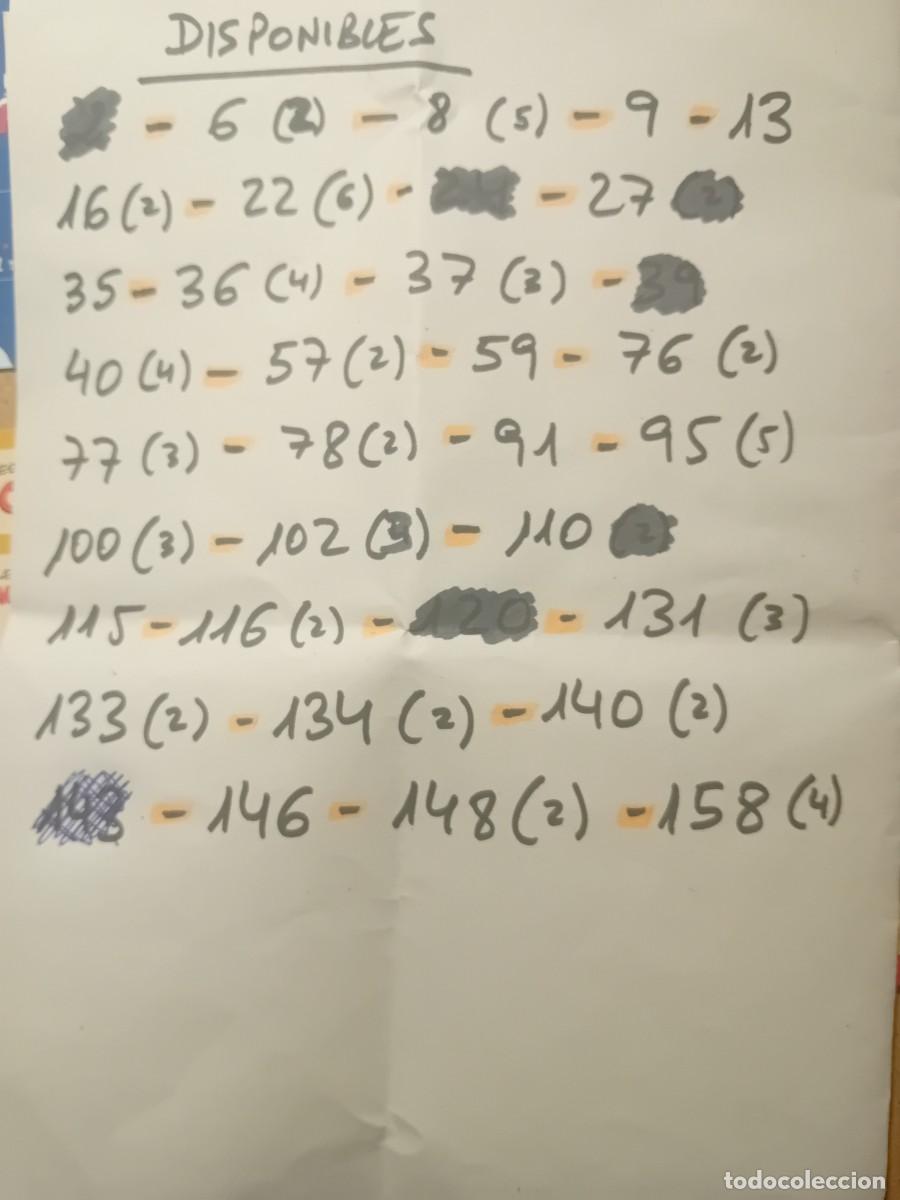 DISPONIBLES
- 6 (2) - 8 (5) - 9 - 13
16 (2) - 22 (6) - - 27
35 - 36 (4) - 37 (3) - 39
40 (4) - 57 (2) - 59 - 76 (2)
77 (3) - 78 (2) - 91 - 95 (5)
100 (3) - 102 (3) - 110 (2)
115 - 116 (2) - 120 - 131 (3)
133 (2) - 134 (2) - 140 (2)
143 - 146 - 148 (2) - 158 (4)
todocoleccion